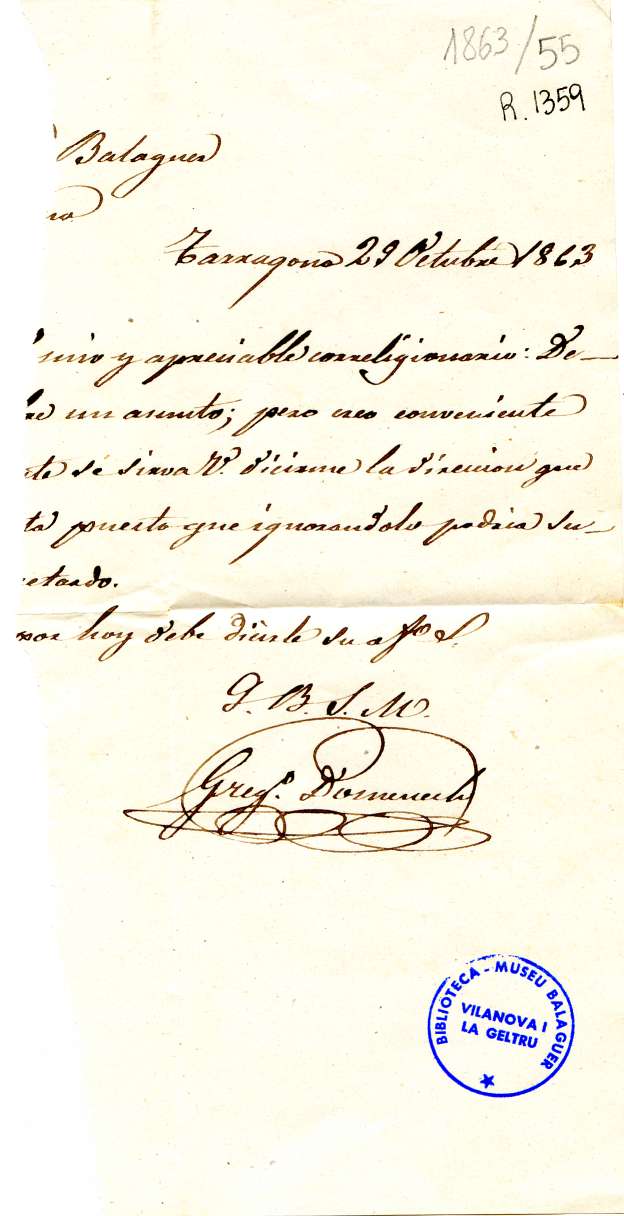 1863/55
R. 1359
Balaguer
Tarragona 29 Octubre 1863
mio y apreciable correligionario: De-
un asunto; pero creo conveniente
se sirva V. dicirme la direccion que
puesto que ignorandolo podria su-
etardo.
por hoy debe dicirle su afmo S.
Q. B. S. M.
Grego. Domenech
BIBLIOTECA - MUSEU BALAGUER
VILANOVA I
LA GELTRU